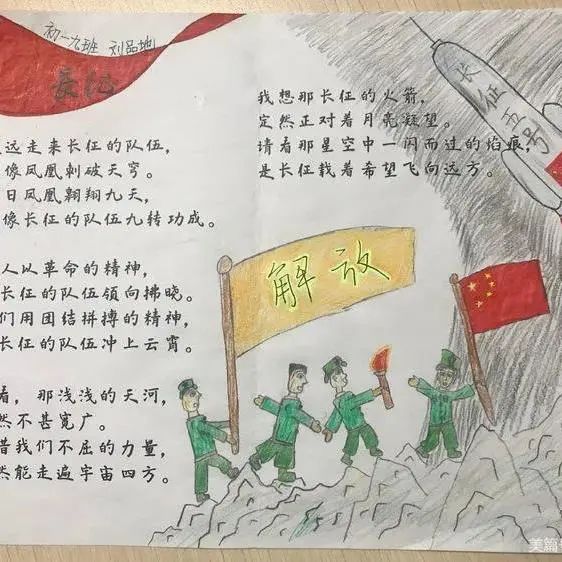 初一九班 刘品地
长征
远走来长征的队伍，
像凤凰刺破天穹。
日凤凰翱翔九天，
像长征的队伍九转功成。
人以革命的精神，
长征的队伍领向拂晓。
们用团结拼搏的精神，
长征的队伍冲上云霄。
看，那浅浅的天河，
然不甚宽广。
借我们不屈的力量，
然能走遍宇宙四方。
我想那长征的火箭，
定然正对着月亮凝望。
请看那星空中一闪而过的焰痕，
是长征载着希望飞向远方。
长征五号
解放
美篇